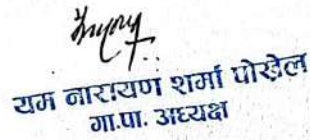 यम नारायण शर्मा पोख्रेल
गा.पा. अध्यक्ष